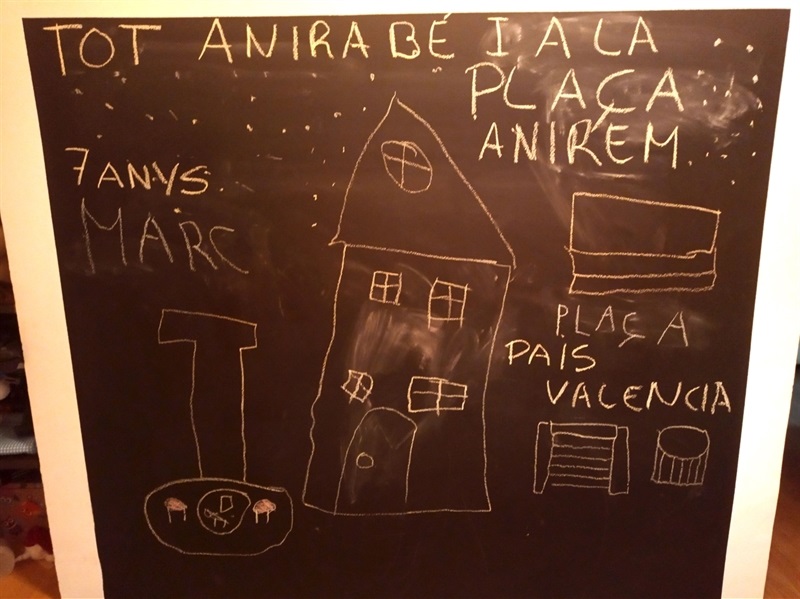 TOT ANIRA BÉ I A LA
PLAÇA
ANIREM
7 ANYS.
MARC
PLAÇA
PAIS
VALENCIA